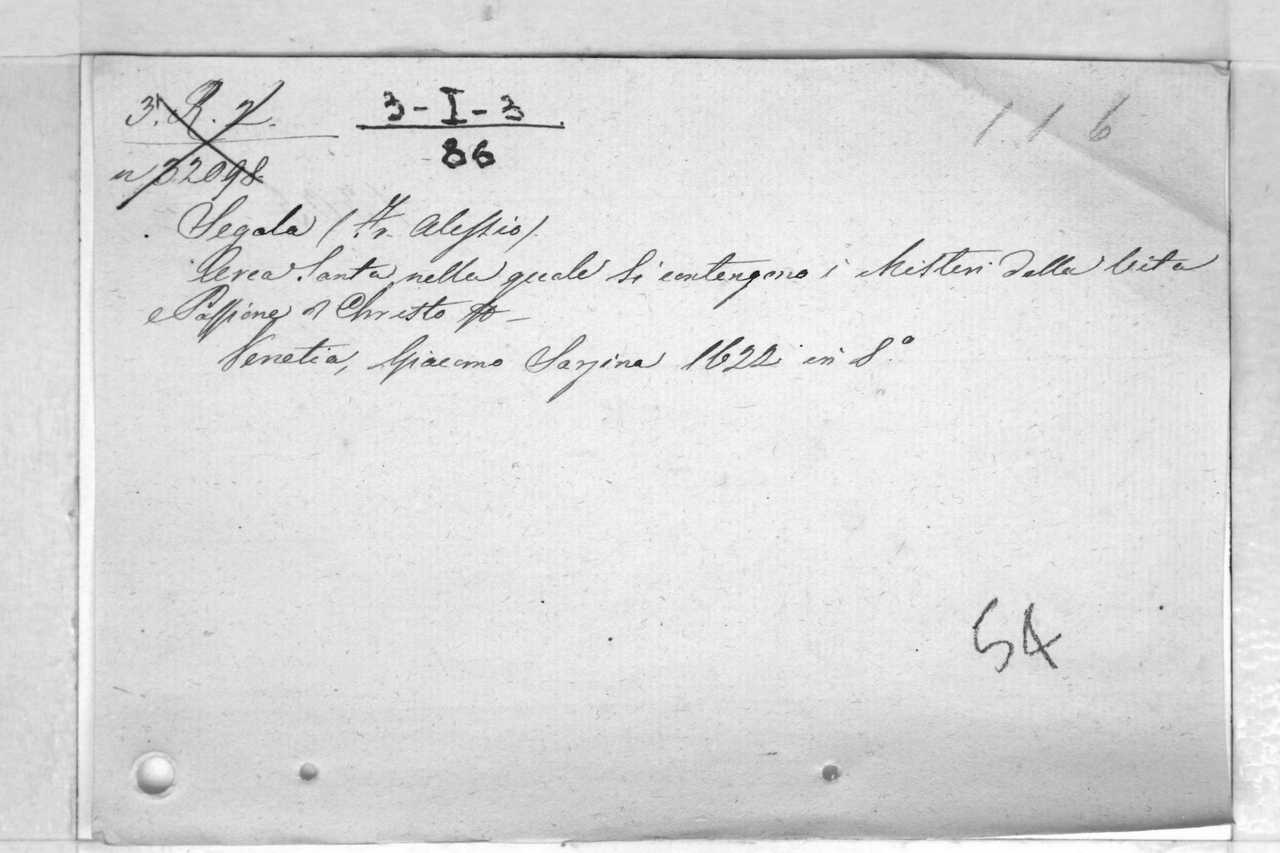 3. R. 2.
n 32098
3-I-3
86
116
Segala (Fr. Alessio)
Arca Santa nella quale si contengono i Misteri della Vita
e Passione di Christo
Venetia, Giacomo Sarzina 1622 in 8.º
54